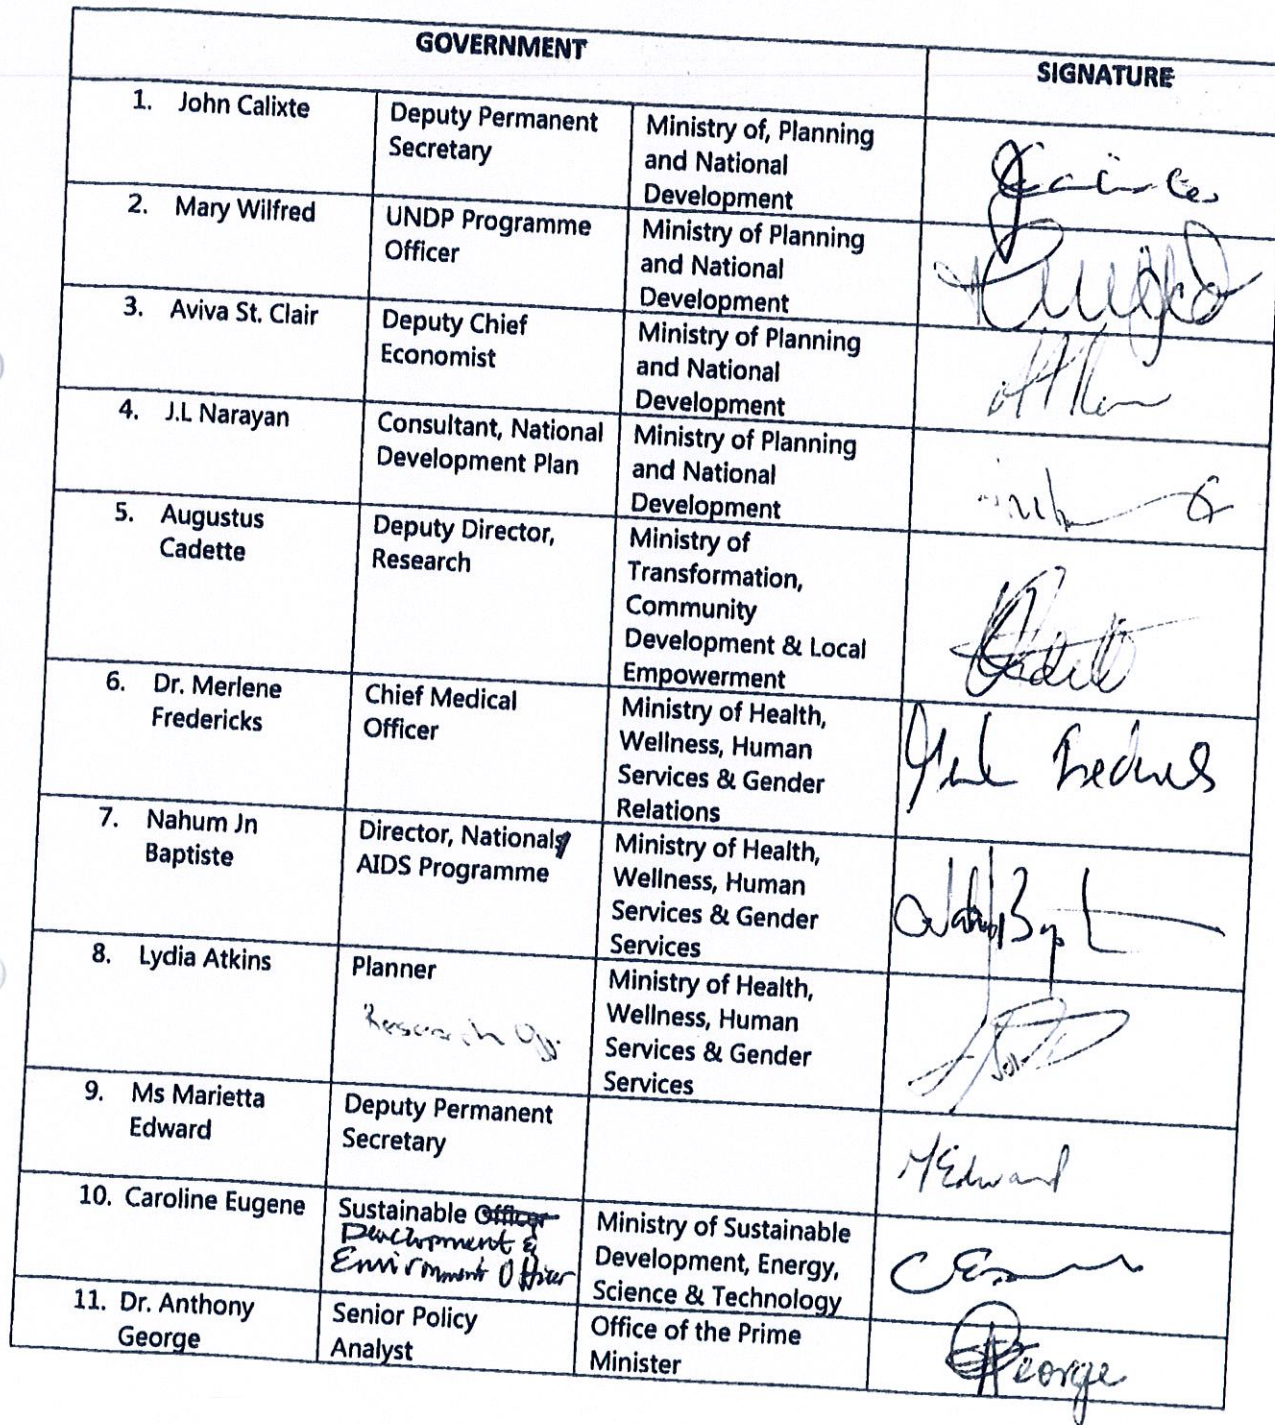 GOVERNMENT
SIGNATURE
1. John Calixte
Deputy Permanent
Secretary
Ministry of, Planning
and National
Development
2. Mary Wilfred
UNDP Programme
Officer
Ministry of Planning
and National
Development
3. Aviva St. Clair
Deputy Chief
Economist
Ministry of Planning
and National
Development
4. J.L Narayan
Consultant, National
Development Plan
Ministry of Planning
and National
Development
5. Augustus
Cadette
Deputy Director,
Research
Ministry of
Transformation,
Community
Development & Local
Empowerment
6. Dr. Merlene
Fredericks
Chief Medical
Officer
Ministry of Health,
Wellness, Human
Services & Gender
Relations
7. Nahum Jn
Baptiste
Director, Nationals
AIDS Programme
Ministry of Health,
Wellness, Human
Services & Gender
Services
8. Lydia Atkins
Planner
Research Off.
Ministry of Health,
Wellness, Human
Services & Gender
Services
9. Ms Marietta
Edward
Deputy Permanent
Secretary
MEdward
10. Caroline Eugene
Sustainable Officer
Development &
Environment Officer
Ministry of Sustainable
Development, Energy,
Science & Technology
11. Dr. Anthony
George
Senior Policy
Analyst
Office of the Prime
Minister
George